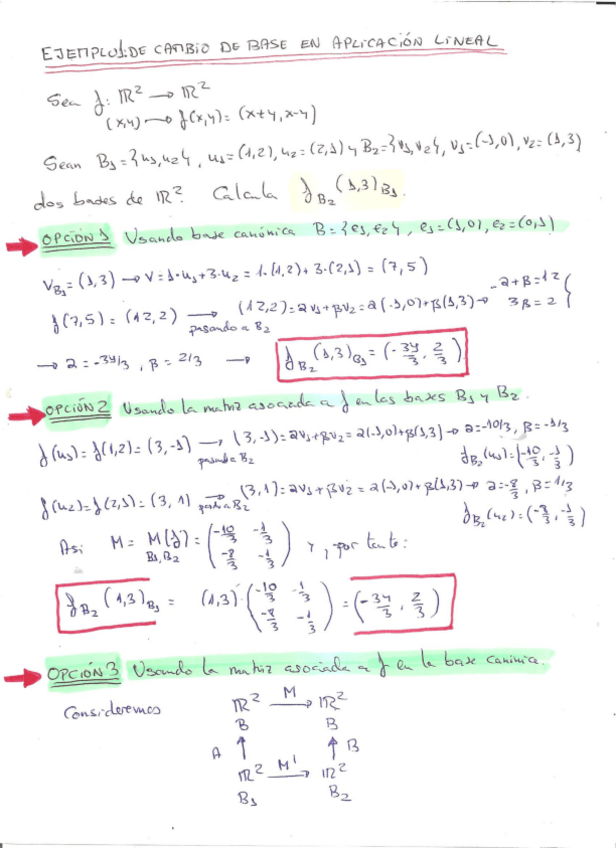 EJEMPLO1: DE CAMBIO DE BASE EN APLICACIÓN LINEAL
Sea f: ℝ² → ℝ²
(x,y) → f(x,y) = (x+y, x-y)
Sean B₁ = {u₁,u₂}, u₁ = (1,2), u₂ = (2,1) y B₂ = {v₁,v₂}, v₁ = (-1,0), v₂ = (1,3)
dos bases de ℝ². Calcula f_B₂(1,3)_B₁.
OPCIÓN 1 Usando base canónica B = {e₁,e₂}, e₁ = (1,0), e₂ = (0,1)
V_B₁ = (1,3) → V = 1·u₁+3·u₂ = 1·(1,2)+3·(2,1) = (7,5)
f(7,5) = (12,2) → pasando a B₂ (12,2) = αv₁+βv₂ = α(-1,0)+β(1,3) → -α+β=12
3β=2
→ α = -34/3, β = 2/3 → f_B₂(1,3)_B₁ = (-34/3, 2/3)
OPCIÓN 2 Usando la matriz asociada a f en las bases B₁ y B₂.
f(u₁) = f(1,2) = (3,-1) → pasando a B₂ (3,-1) = αv₁+βv₂ = α(-1,0)+β(1,3) → α=-10/3, β=-1/3
f_B₂(u₁) = (-10/3, -1/3)
f(u₂) = f(2,1) = (3,1) → pasando a B₂ (3,1) = αv₁+βv₂ = α(-1,0)+β(1,3) → α=-8/3, β=1/3
f_B₂(u₂) = (-8/3, -1/3)
Asi M = M(f)_B₁,B₂ = (-10/3 -1/3
-8/3 -1/3) y, por tanto:
f_B₂(1,3)_B₁ = (1,3)·(-10/3 -1/3
-8/3 -1/3) = (-34/3, 2/3)
OPCIÓN 3 Usando la matriz asociada a f en la base canónica.
Consideremos ℝ² M→ ℝ²
B B
A ↑ ↑ B
ℝ² M'→ ℝ²
B₁ B₂